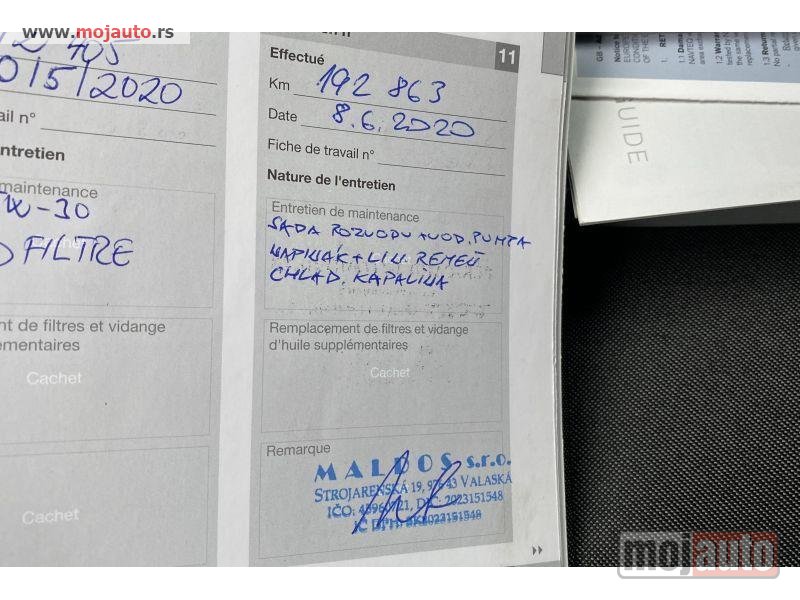 www.mojauto.rs
405
0/5/2020
ail n°
ntretien
maintenance
W-30
FILTRE
nt de filtres et vidange
ementaires
Cachet
Cachet
11
Effectué
Km 192 863
Date 8.6.2020
Fiche de travail n°
Nature de l'entretien
Entretien de maintenance
SADA ROZVODU +VOD. PUMPA
NAPINÁK + LIN. REMEŇ
CHLAD. KAPALINA
Remplacement de filtres et vidange
d'huile supplémentaires
Cachet
Remarque
MALDOS s.r.o.
STROJARENSKÁ 19, 976 43 VALASKÁ
IČO: 45960721, DIČ: 2023151548
IČ DPH: SK2023151548
UIDE
GB - A
1. RET
1.1 Dama
NAVTEQ
1.2 Warra
tested by
the same
replacemen
1.3 Return
No partial
mojauto